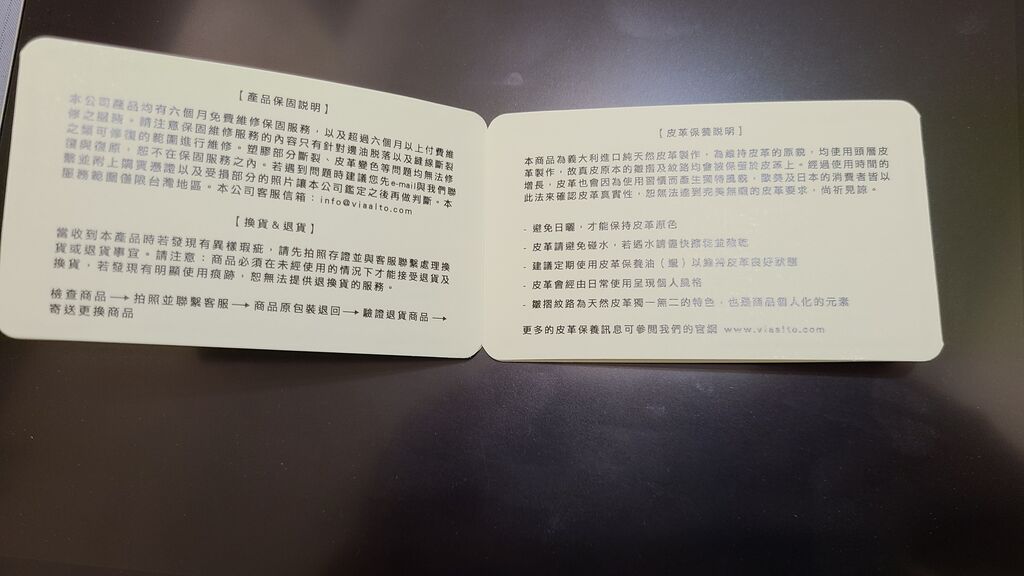 【產品保固說明】
本公司產品均有六個月免費維修保固服務，以及超過六個月以上付費維
修之服務。請注意保固維修服務的內容只有針對邊油脫落以及縫線斷裂
之類可修復的範圍進行維修。塑膠部分斷裂、皮革變色等問題均無法修
復與復原，恕不在保固服務之內。若遇到問題時建議您先e-mail與我們聯
繫並附上購買憑證以及受損部分的照片讓本公司鑑定之後再做判斷。本
服務範圍僅限台灣地區。本公司客服信箱：info@viaalto.com
【換貨&退貨】
當收到本產品時若發現有異樣瑕疵，請先拍照存證並與客服聯繫處理換
貨或退貨事宜。請注意：商品必須在未經使用的情況下才能接受退貨及
換貨，若發現有明顯使用痕跡，恕無法提供退換貨的服務。
檢查商品→拍照並聯繫客服→商品原包裝退回→驗證退貨商品→
寄送更換商品
【皮革保養說明】
本商品為義大利進口純天然皮革製作，為維持皮革的原貌，均使用頭層皮
革製作，故真皮原本的皺摺及紋路均會被保留於皮革上。經過使用時間的
增長，皮革也會因為使用習慣而產生獨特風貌，歐美及日本的消費者皆以
此法來確認皮革真實性，恕無法達到完美無瑕的皮革要求，尚祈見諒。
- 避免日曬，才能保持皮革原色
- 皮革請避免碰水，若遇水請儘快擦乾並晾乾
- 建議定期使用皮革保養油（蠟）以維持皮革良好狀態
- 皮革會經由日常使用呈現個人風格
- 皺摺紋路為天然皮革獨一無二的特色，也是商品個人化的元素
更多的皮革保養訊息可參閱我們的官網 www.viaalto.com